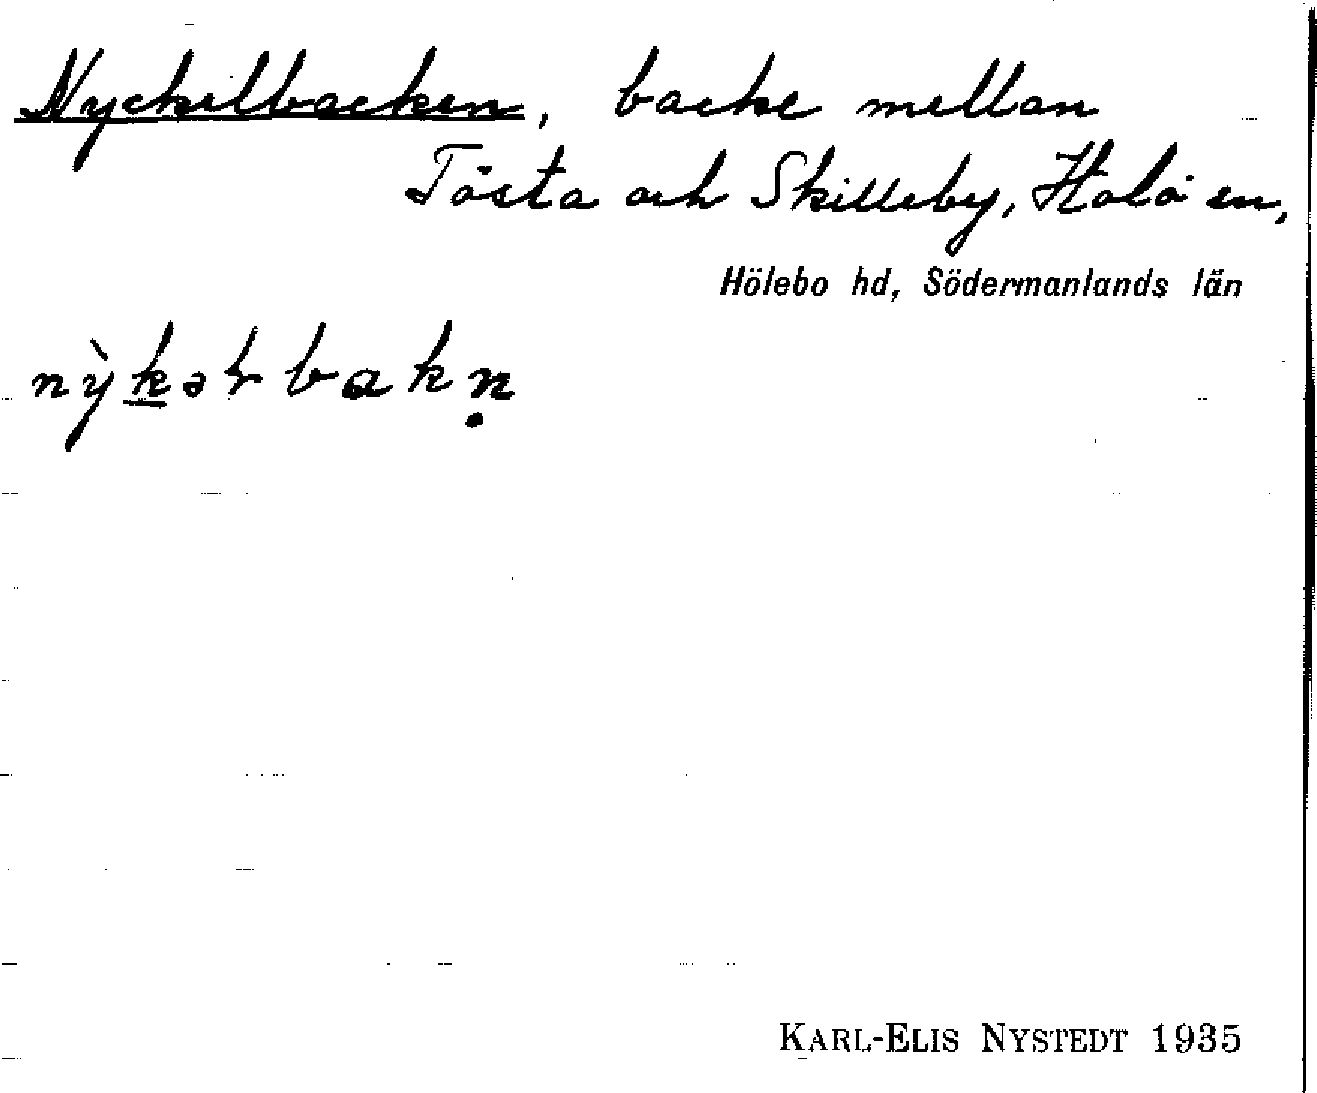 Nyckelbacken, backe mellan
Tösta och Skilleby, Hölö sn,
Hölebo hd, Södermanlands län
nỳk̲əɫbakṇ
KARL-ELIS NYSTEDT 1935